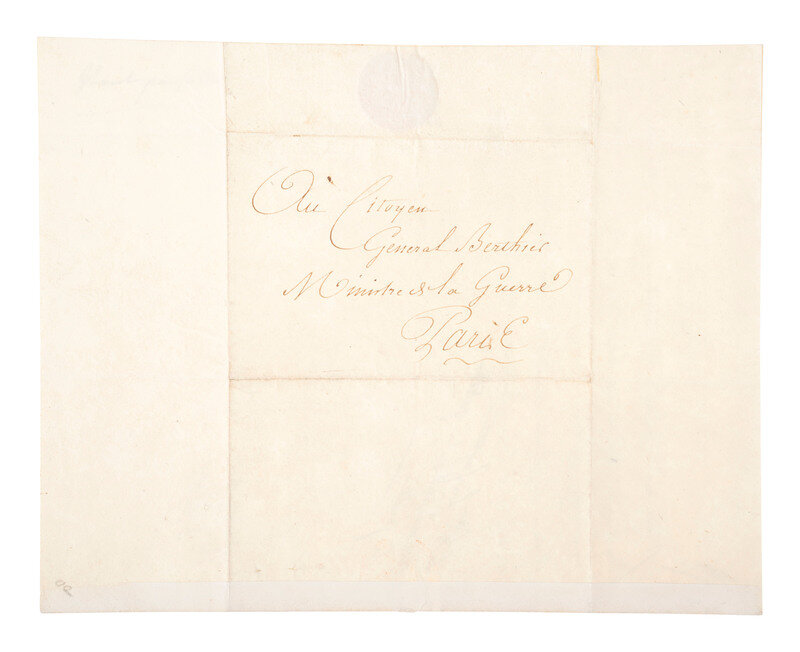 Au Citoyen
General Berthier
Ministre de la Guerre
Paris